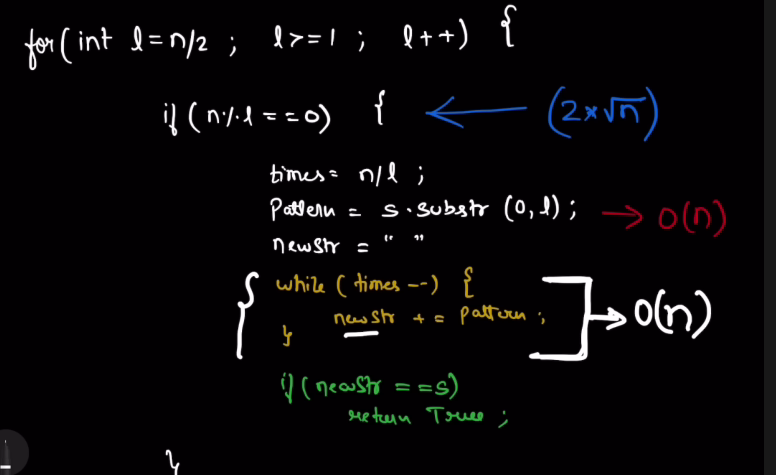 for ( int l = n/2 ; l >= 1 ; l++) {
if ( n % l == 0) { ← (2 * √n)
times = n/l ;
Pattern = s . substr (0, l) ; → O(n)
newstr = " "
{ while ( times --) { ] → O(n)
newstr += pattern ;
}
if ( newstr == s)
return True ;
}